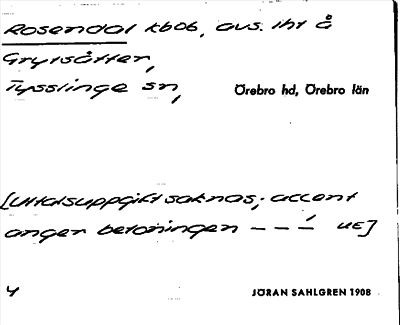 Rosendal kbob, avs. iht å
Grytsätter,
Tysslinge sn,
Örebro hd, Örebro län
[Uttalsuppgift saknas; accent
anger betoningen – – –́ UE]
4
JÖRAN SAHLGREN 1908